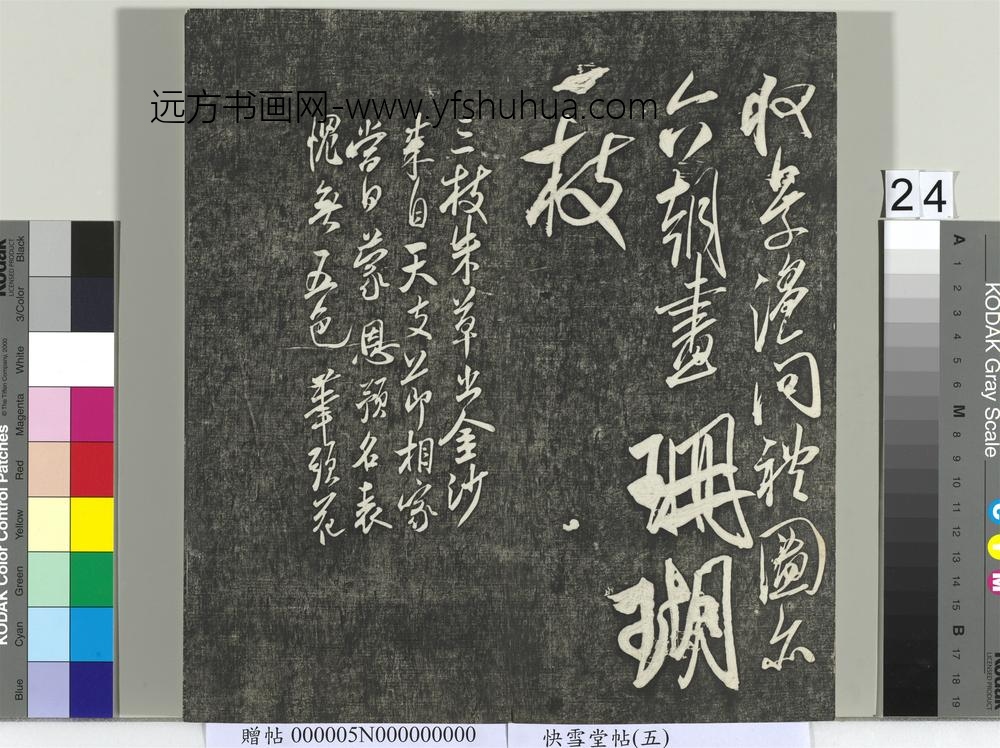 远方书画网-www.yfshuhua.com
收景溫問禮圖亦
六朝畫珊瑚
一枝
三枝朱草出金沙
来自天支節相家
當日蒙恩預名表
愧無五色筆頭花
24
贈帖 000005N000000000
快雪堂帖(五)
KODAK Color Control Patches
LICENSED PRODUCT
© The Tiffen Company, 2000
Blue
Cyan
Green
Yellow
Red
Magenta
White
3/Color
Black
Kodak
KODAK Gray Scale
A 1 2 3 4 5 6 M 8 9 10 11 12 13 14 15 B 17 18 19
C
Y
M
Kodak
LICENSED PRODUCT